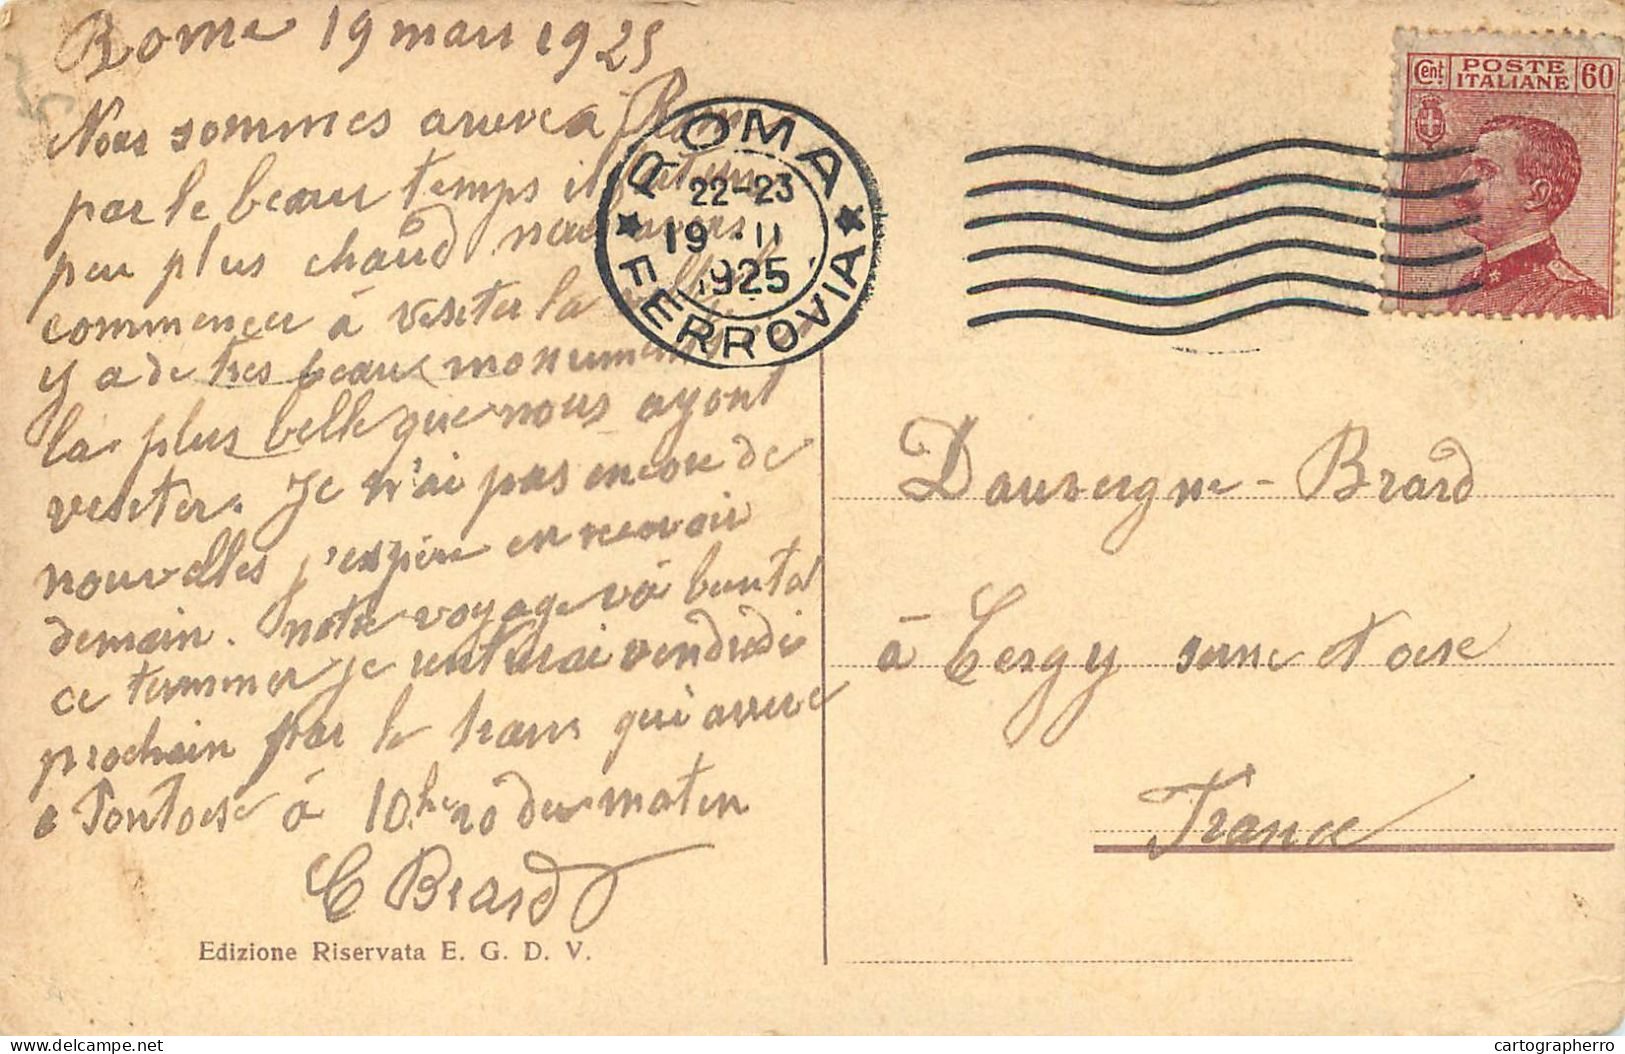 Rome 19 mars 1925
Nous sommes arrive a Rome
par le beau temps il fait un
peu plus chaud nous avons
commencer à visiter la ville il
y a de tres beaux monuments
la plus belle que nous ayont
visiter. Je n'ai pas encore de
nouvelles j'espère en recevoir
demain. notre voyage va bientot
ce terminer je rentrerai vendredi
prochain par le train qui arrive
a Pontoise à 10he 20 du matin
C Brard
Edizione Riservata E. G. D. V.
ROMA
22-23
19 · II
1925
FERROVIA
Cent POSTE ITALIANE 60
Dauvergne - Brard
à Cergy seine et oise
France
cartographerro
delcampe.net